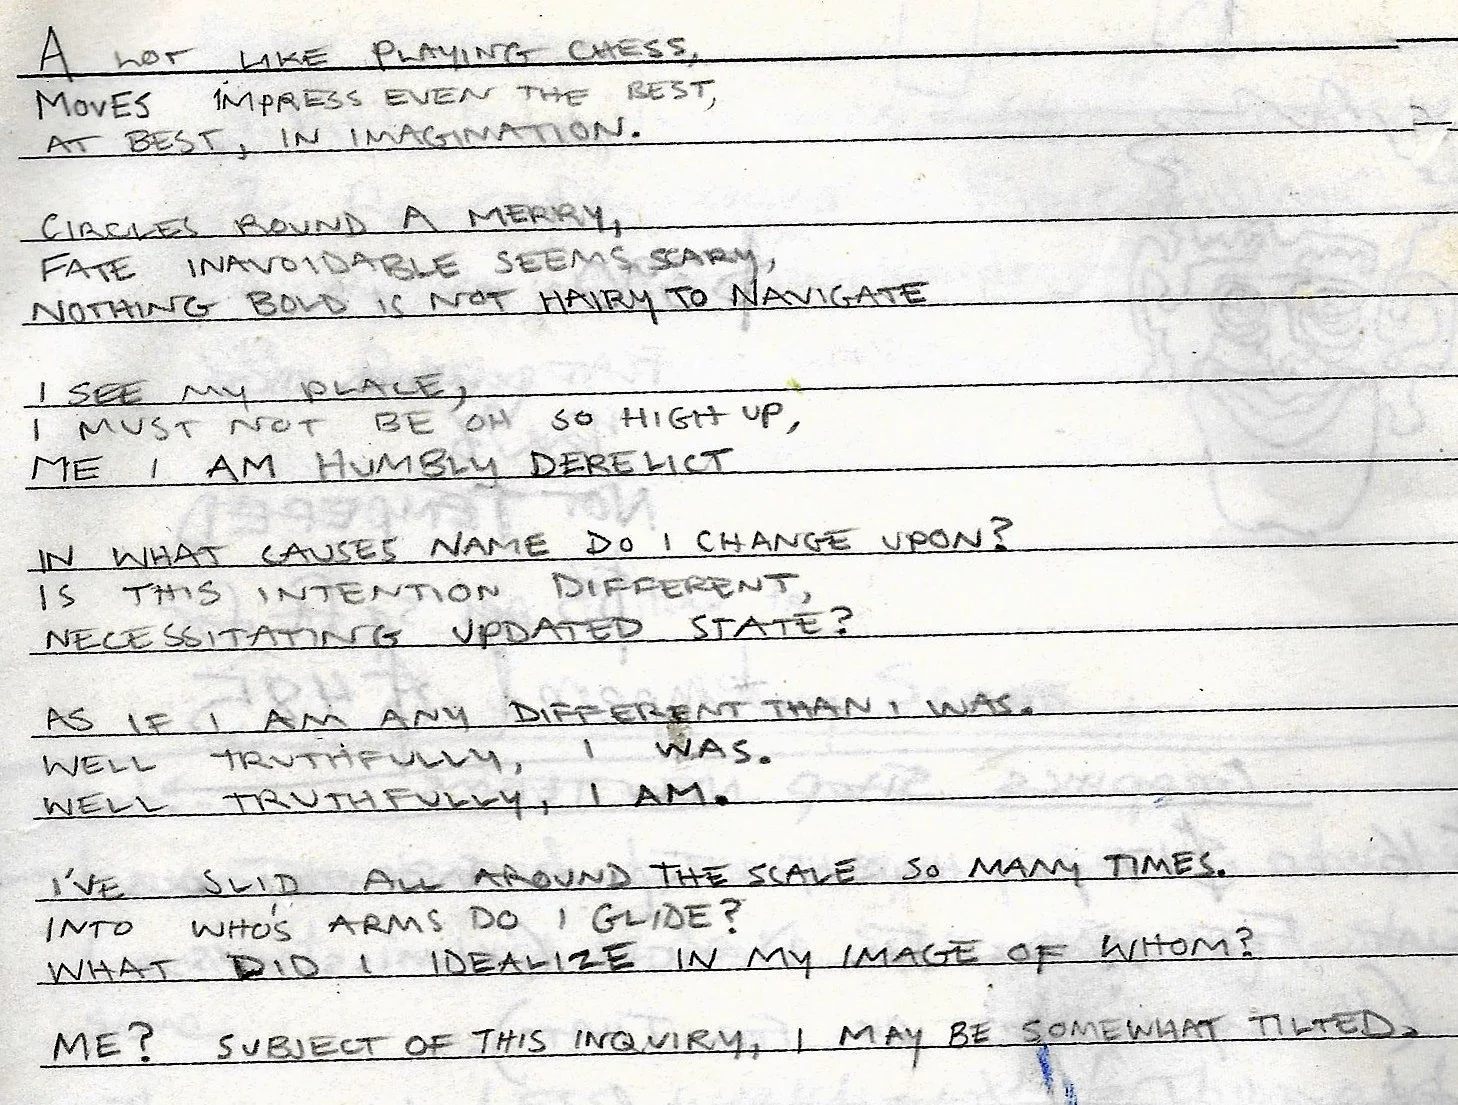 A LOT LIKE PLAYING CHESS,
MOVES IMPRESS EVEN THE BEST,
AT BEST, IN IMAGINATION.
CIRCLES ROUND A MERRY,
FATE INAVOIDABLE SEEMS SCARY,
NOTHING BOLD IS NOT HAIRY TO NAVIGATE
I SEE MY PLACE,
I MUST NOT BE OH SO HIGH UP,
ME I AM HUMBLY DERELICT
IN WHAT CAUSES NAME DO I CHANGE UPON?
IS THIS INTENTION DIFFERENT,
NECESSITATING UPDATED STATE?
AS IF I AM ANY DIFFERENT THAN I WAS.
WELL TRUTHFULLY, I WAS.
WELL TRUTHFULLY, I AM.
I'VE SLID ALL AROUND THE SCALE SO MANY TIMES.
INTO WHO'S ARMS DO I GLIDE?
WHAT DID I IDEALIZE IN MY IMAGE OF WHOM?
ME? SUBJECT OF THIS INQUIRY, I MAY BE SOMEWHAT TILTED.